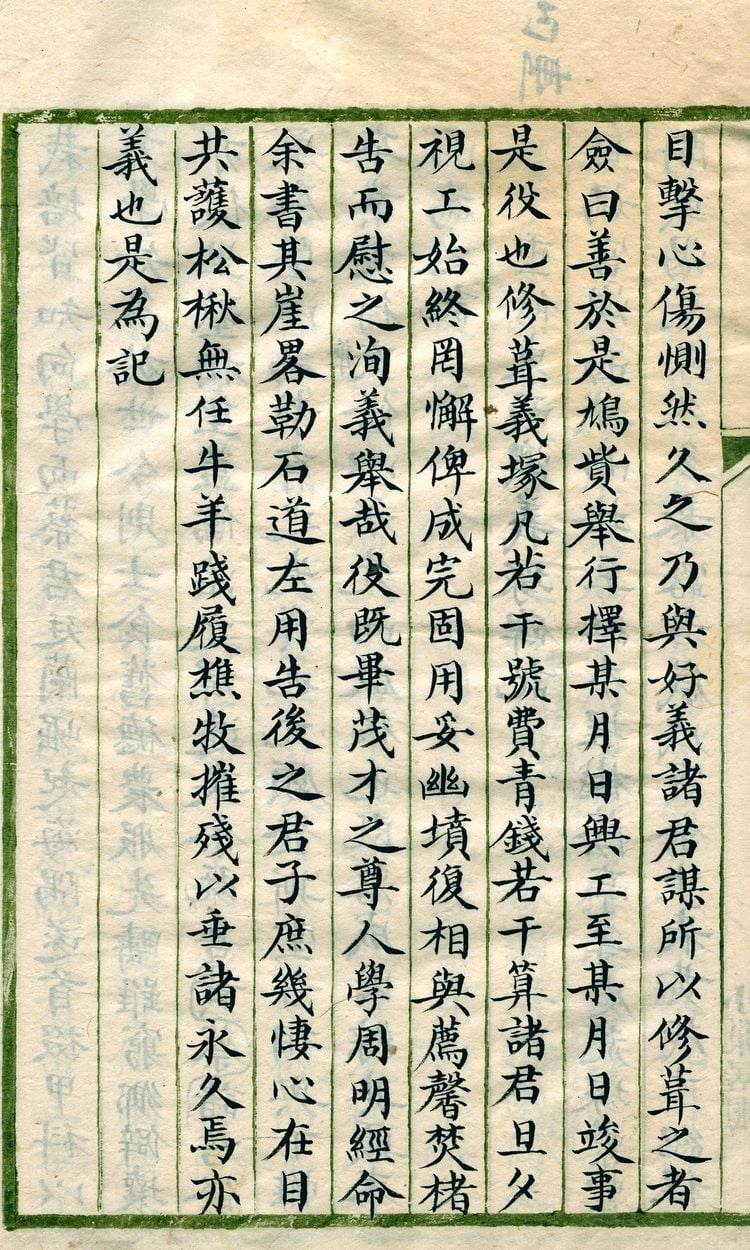 已刪
目擊心傷惻然久之乃與好義諸君謀所以修葺之者
僉曰善於是鳩貲舉行擇某月日興工至某月日竣事
是役也修葺義塚凡若干號費青錢若干算諸君旦夕
視工始終罔懈俾成完固用妥幽墳復相與薦馨焚楮
告而慰之洵義舉哉役既畢茂才之尊人學周明經命
余書其崖畧勒石道左用告後之君子庶幾悽心在目
共蒦松楸無任牛羊踐履樵牧摧殘以垂諸永久焉亦
義也是為記